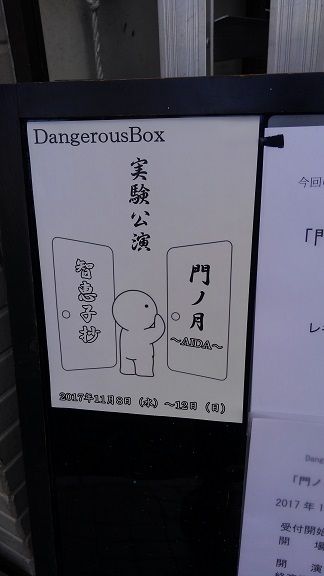 DangerousBox
実験公演
智恵子抄
門ノ月
～AIDA～
2017年11月8日（水）～12日（日）
今回
「門
レ
Dang
「門ノ
2017年1
受付開始
開 場
開 演